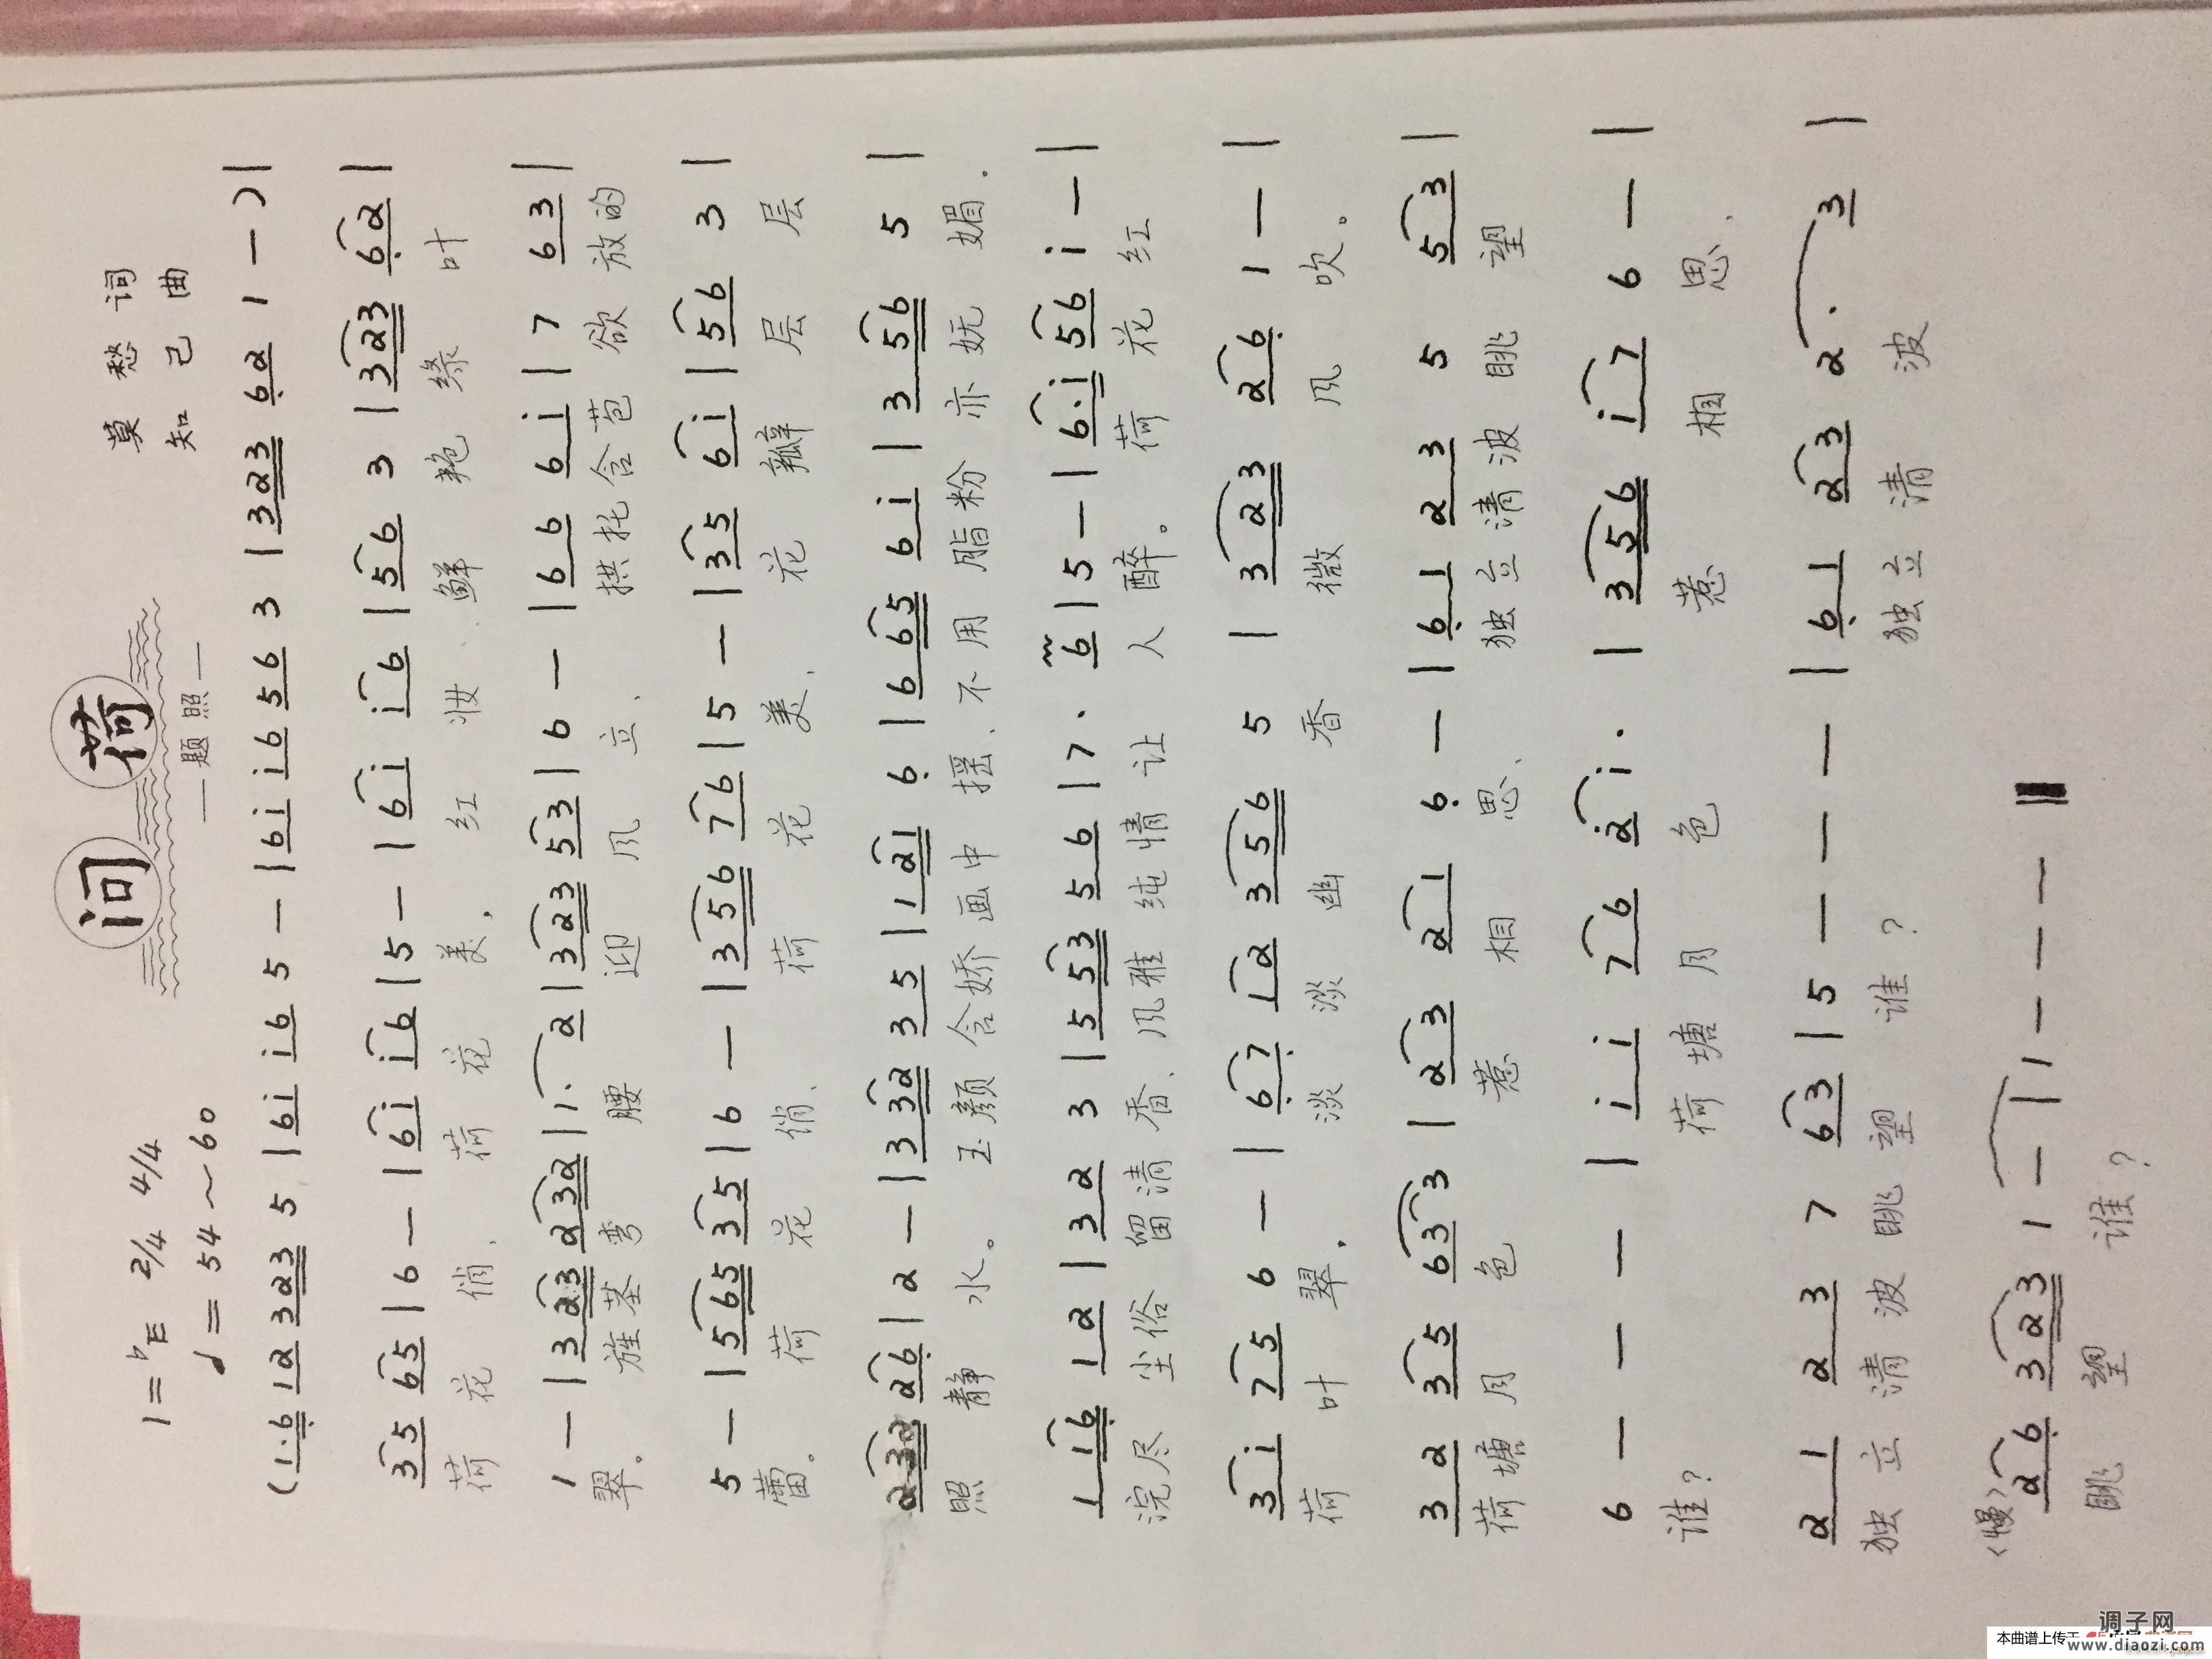 问荷
—题照—
莫愁 词
知己 曲
1=♭E 2/4 4/4
♩=54~60
(1·6 12 323 5 | 6i i6 5 — | 6i i6 56 3 | 323 62 1 — ) |
35 65 | 6 — | 6i i6 | 5 — | 6i i6 | 56 3 | 323 62 |
荷花俏、荷花美，红妆、鲜艳绿叶
1 — | 3 23 2 32 | 1· 2 | 323 53 | 6 — | 66 6i | 7 63 |
翠。旋茎弯腰迎风立、拱托含苞欲放的
5 — | 565 35 | 6 — | 356 76 | 5 — | 35 6i | 56 3 |
蕾。荷花俏、荷花美、花瓣层层
232 26 | 2 — | 3 32 35 | 1 21 6 | 6 65 6i | 3 56 5 |
照静水。玉颜含娇画中摇、不用脂粉亦妩媚．
1 16 12 | 32 3 | 5 53 56 | 7· 6 | 5 — | 6·i 56 i — |
浣尽尘俗留清香、风雅纯情让人醉。荷花红
3i 75 6 — | 67 12 356 5 | 323 26 1 — |
荷叶翠，淡淡幽香微风吹。
32 35 63 3 | 23 21 6 — | 61 23 5 53 |
荷塘月色惹相思、独立清波眺望
6 — — — | ii 76 2i· | 356 i7 6 — |
谁？荷塘月色惹相思、
21 23 7 63 | 5 — — — | 61 23 2· 3 |
独立清波眺望谁？独立清波
<慢>
26 323 1 — | 1 — — — ‖
眺望谁？
本曲谱上传于
调子网
www.diaozi.com